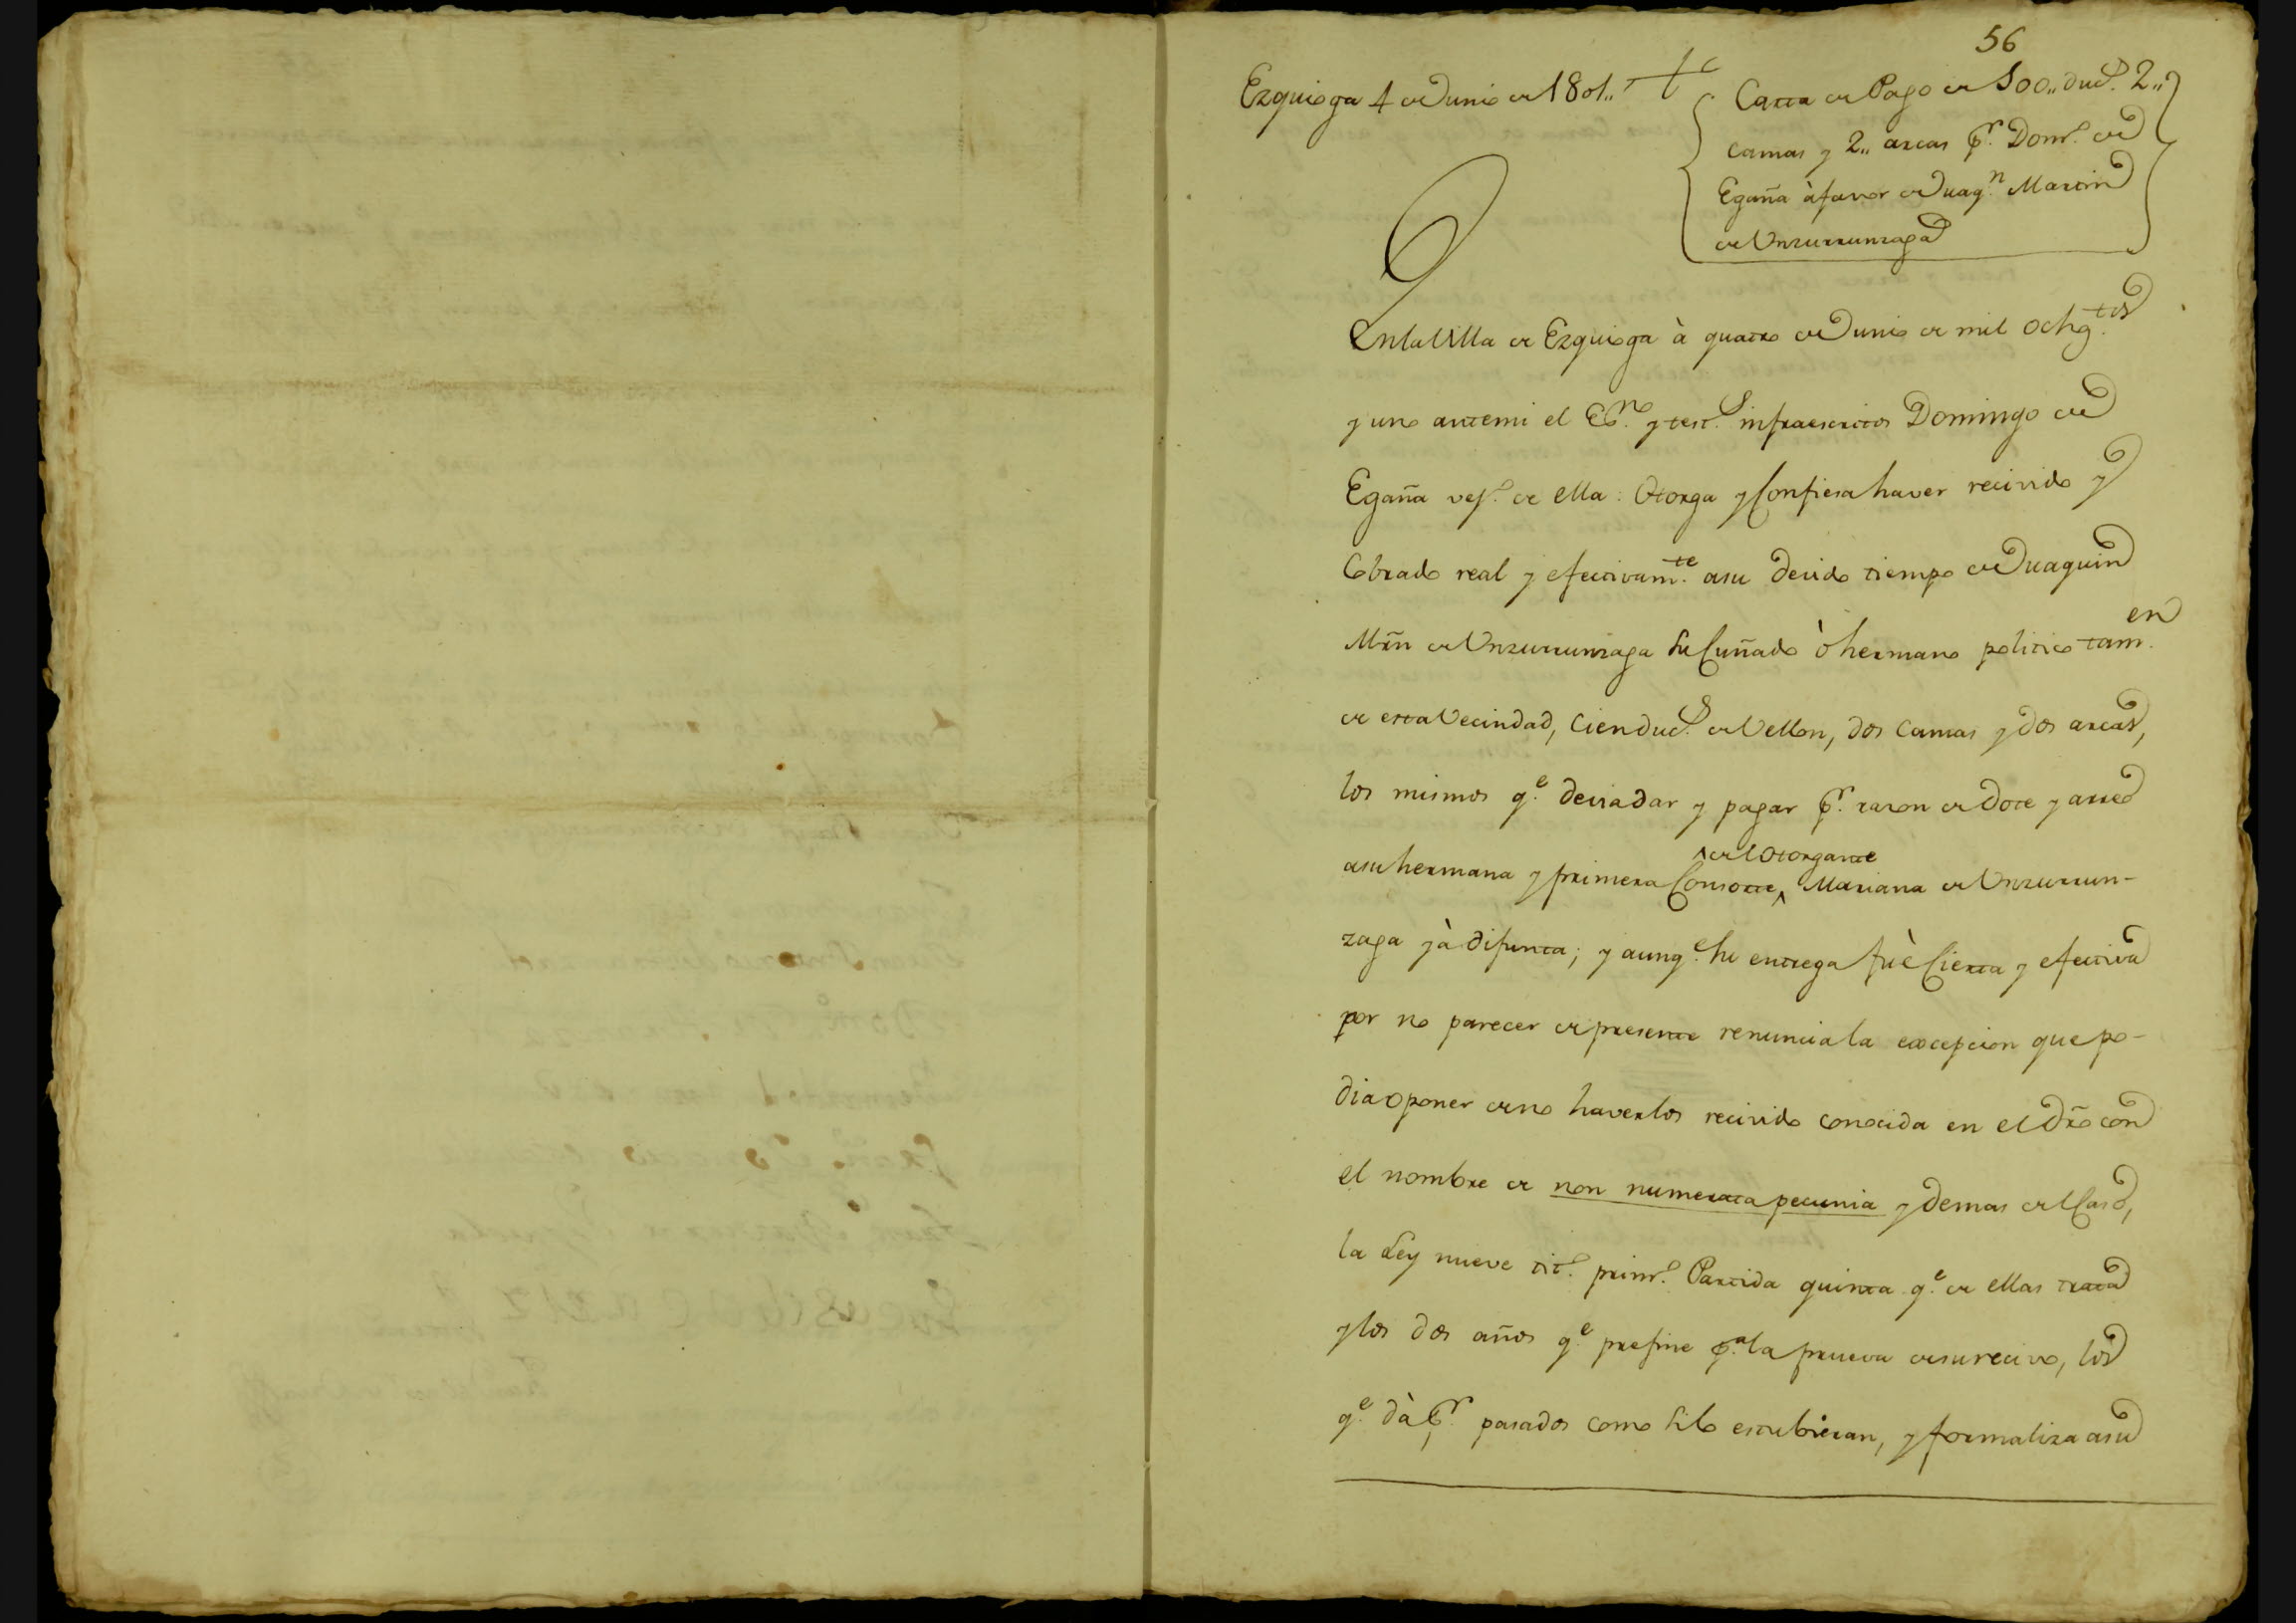 56
Ezquioga 4 de Junio de 1801,,
Carta de Pago de 100,, duc.s 2,,
camas y 2,, arcas pr. Dom.o de
Egaña à favor de Juaq.n Martin
de Unzurrunzaga
En la Villa de Ezquioga à quatro de Junio de mil ochoz.tos
y uno ante mi el Es.no y test.s infraescritos Domingo de
Egaña vez.o de ella: Otorga y Confiesa haver recivido y
Cobrado real y efectivam.te a su devido tiempo de Juaquin
Mrñ de Unzurrunzaga su Cuñado ò hermano politico tam.en
de esta Vecindad, Cien duc.s de Vellon, dos Camas y dos arcas,
los mismos q.e devia dar y pagar pr. razon de Dote y arreo
a su hermana y primera Consorte ^del Otorgante^ Mariana de Unzurrun-
zaga yà difunta; y aunq.e su entrega fuè Cierta y efectiva
por no parecer de presente renuncia la excepcion que po-
dia oponer de no haverlos recivido conocida en el Dr̃o con
el nombre de non numerata pecunia y demas del Caso,
la Ley nueve tit.o prim.o Partida quinta q.e de ellas trata
y los dos años q.e prefine p.a la prueva de su recivo, los
q.e dà pr. pasados como si lo estubieran, y formaliza a su